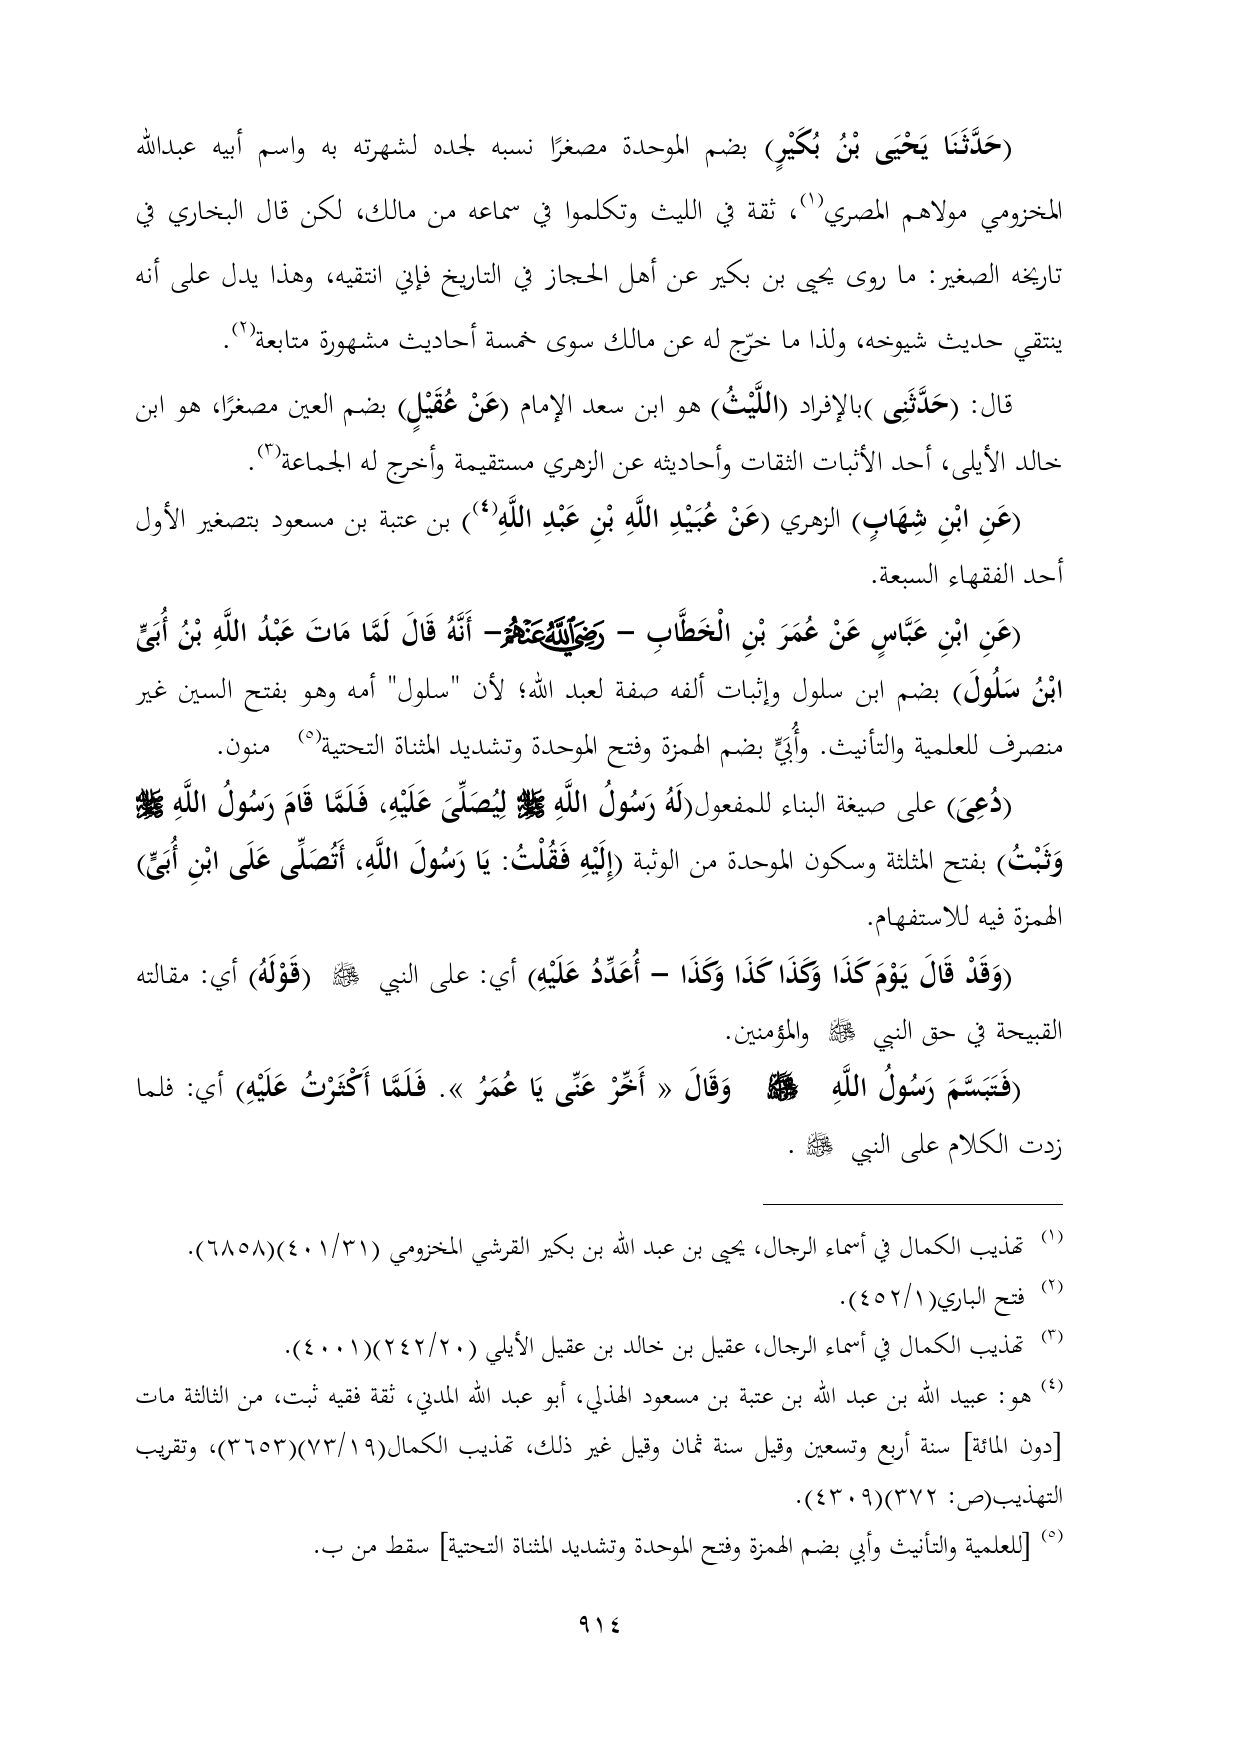 (حَدَّثَنَا يَحْيَى بْنُ بُكَيْرٍ) بضم الموحدة مصغرًا نسبه لجده لشهرته به واسم أبيه عبدالله
المخزومي مولاهم المصري(١)، ثقة في الليث وتكلموا في سماعه من مالك، لكن قال البخاري في
تاريخه الصغير: ما روى يحيى بن بكير عن أهل الحجاز في التاريخ فإني انتقيه، وهذا يدل على أنه
ينتقي حديث شيوخه، ولذا ما خرّج له عن مالك سوى خمسة أحاديث مشهورة متابعة(٢).
قال: (حَدَّثَنِى )بالإفراد (اللَّيْثُ) هو ابن سعد الإمام (عَنْ عُقَيْلٍ) بضم العين مصغرًا، هو ابن
خالد الأيلى، أحد الأثبات الثقات وأحاديثه عن الزهري مستقيمة وأخرج له الجماعة(٣).
(عَنِ ابْنِ شِهَابٍ) الزهري (عَنْ عُبَيْدِ اللَّهِ بْنِ عَبْدِ اللَّهِ(٤)) بن عتبة بن مسعود بتصغير الأول
أحد الفقهاء السبعة.
(عَنِ ابْنِ عَبَّاسٍ عَنْ عُمَرَ بْنِ الْخَطَّابِ – رَضِيَ اللَّهُ عَنْهُمْ– أَنَّهُ قَالَ لَمَّا مَاتَ عَبْدُ اللَّهِ بْنُ أُبَىٍّ
ابْنُ سَلُولَ) بضم ابن سلول وإثبات ألفه صفة لعبد الله؛ لأن "سلول" أمه وهو بفتح السين غير
منصرف للعلمية والتأنيث. وأُبَيٍّ بضم الهمزة وفتح الموحدة وتشديد المثناة التحتية(٥) منون.
(دُعِىَ) على صيغة البناء للمفعول(لَهُ رَسُولُ اللَّهِ ﷺ لِيُصَلِّىَ عَلَيْهِ، فَلَمَّا قَامَ رَسُولُ اللَّهِ ﷺ
وَثَبْتُ) بفتح المثلثة وسكون الموحدة من الوثبة (إِلَيْهِ فَقُلْتُ: يَا رَسُولَ اللَّهِ، أَتُصَلِّى عَلَى ابْنِ أُبَىٍّ)
الهمزة فيه للاستفهام.
(وَقَدْ قَالَ يَوْمَ كَذَا وَكَذَا كَذَا وَكَذَا – أُعَدِّدُ عَلَيْهِ) أي: على النبي ﷺ (قَوْلَهُ) أي: مقالته
القبيحة في حق النبي ﷺ والمؤمنين.
(فَتَبَسَّمَ رَسُولُ اللَّهِ ﷺ وَقَالَ « أَخِّرْ عَنِّى يَا عُمَرُ ». فَلَمَّا أَكْثَرْتُ عَلَيْهِ) أي: فلما
زدت الكلام على النبي ﷺ .
(١) تهذيب الكمال في أسماء الرجال، يحيى بن عبد الله بن بكير القرشي المخزومي (٤٠١/٣١)(٦٨٥٨).
(٢) فتح الباري(٤٥٢/١).
(٣) تهذيب الكمال في أسماء الرجال، عقيل بن خالد بن عقيل الأيلي (٢٤٢/٢٠)(٤٠٠١).
(٤) هو: عبيد الله بن عبد الله بن عتبة بن مسعود الهذلي، أبو عبد الله المدني، ثقة فقيه ثبت، من الثالثة مات
[دون المائة] سنة أربع وتسعين وقيل سنة ثمان وقيل غير ذلك، تهذيب الكمال(٧٣/١٩)(٣٦٥٣)، وتقريب
التهذيب(ص: ٣٧٢)(٤٣٠٩).
(٥) [للعلمية والتأنيث وأبي بضم الهمزة وفتح الموحدة وتشديد المثناة التحتية] سقط من ب.
٩١٤